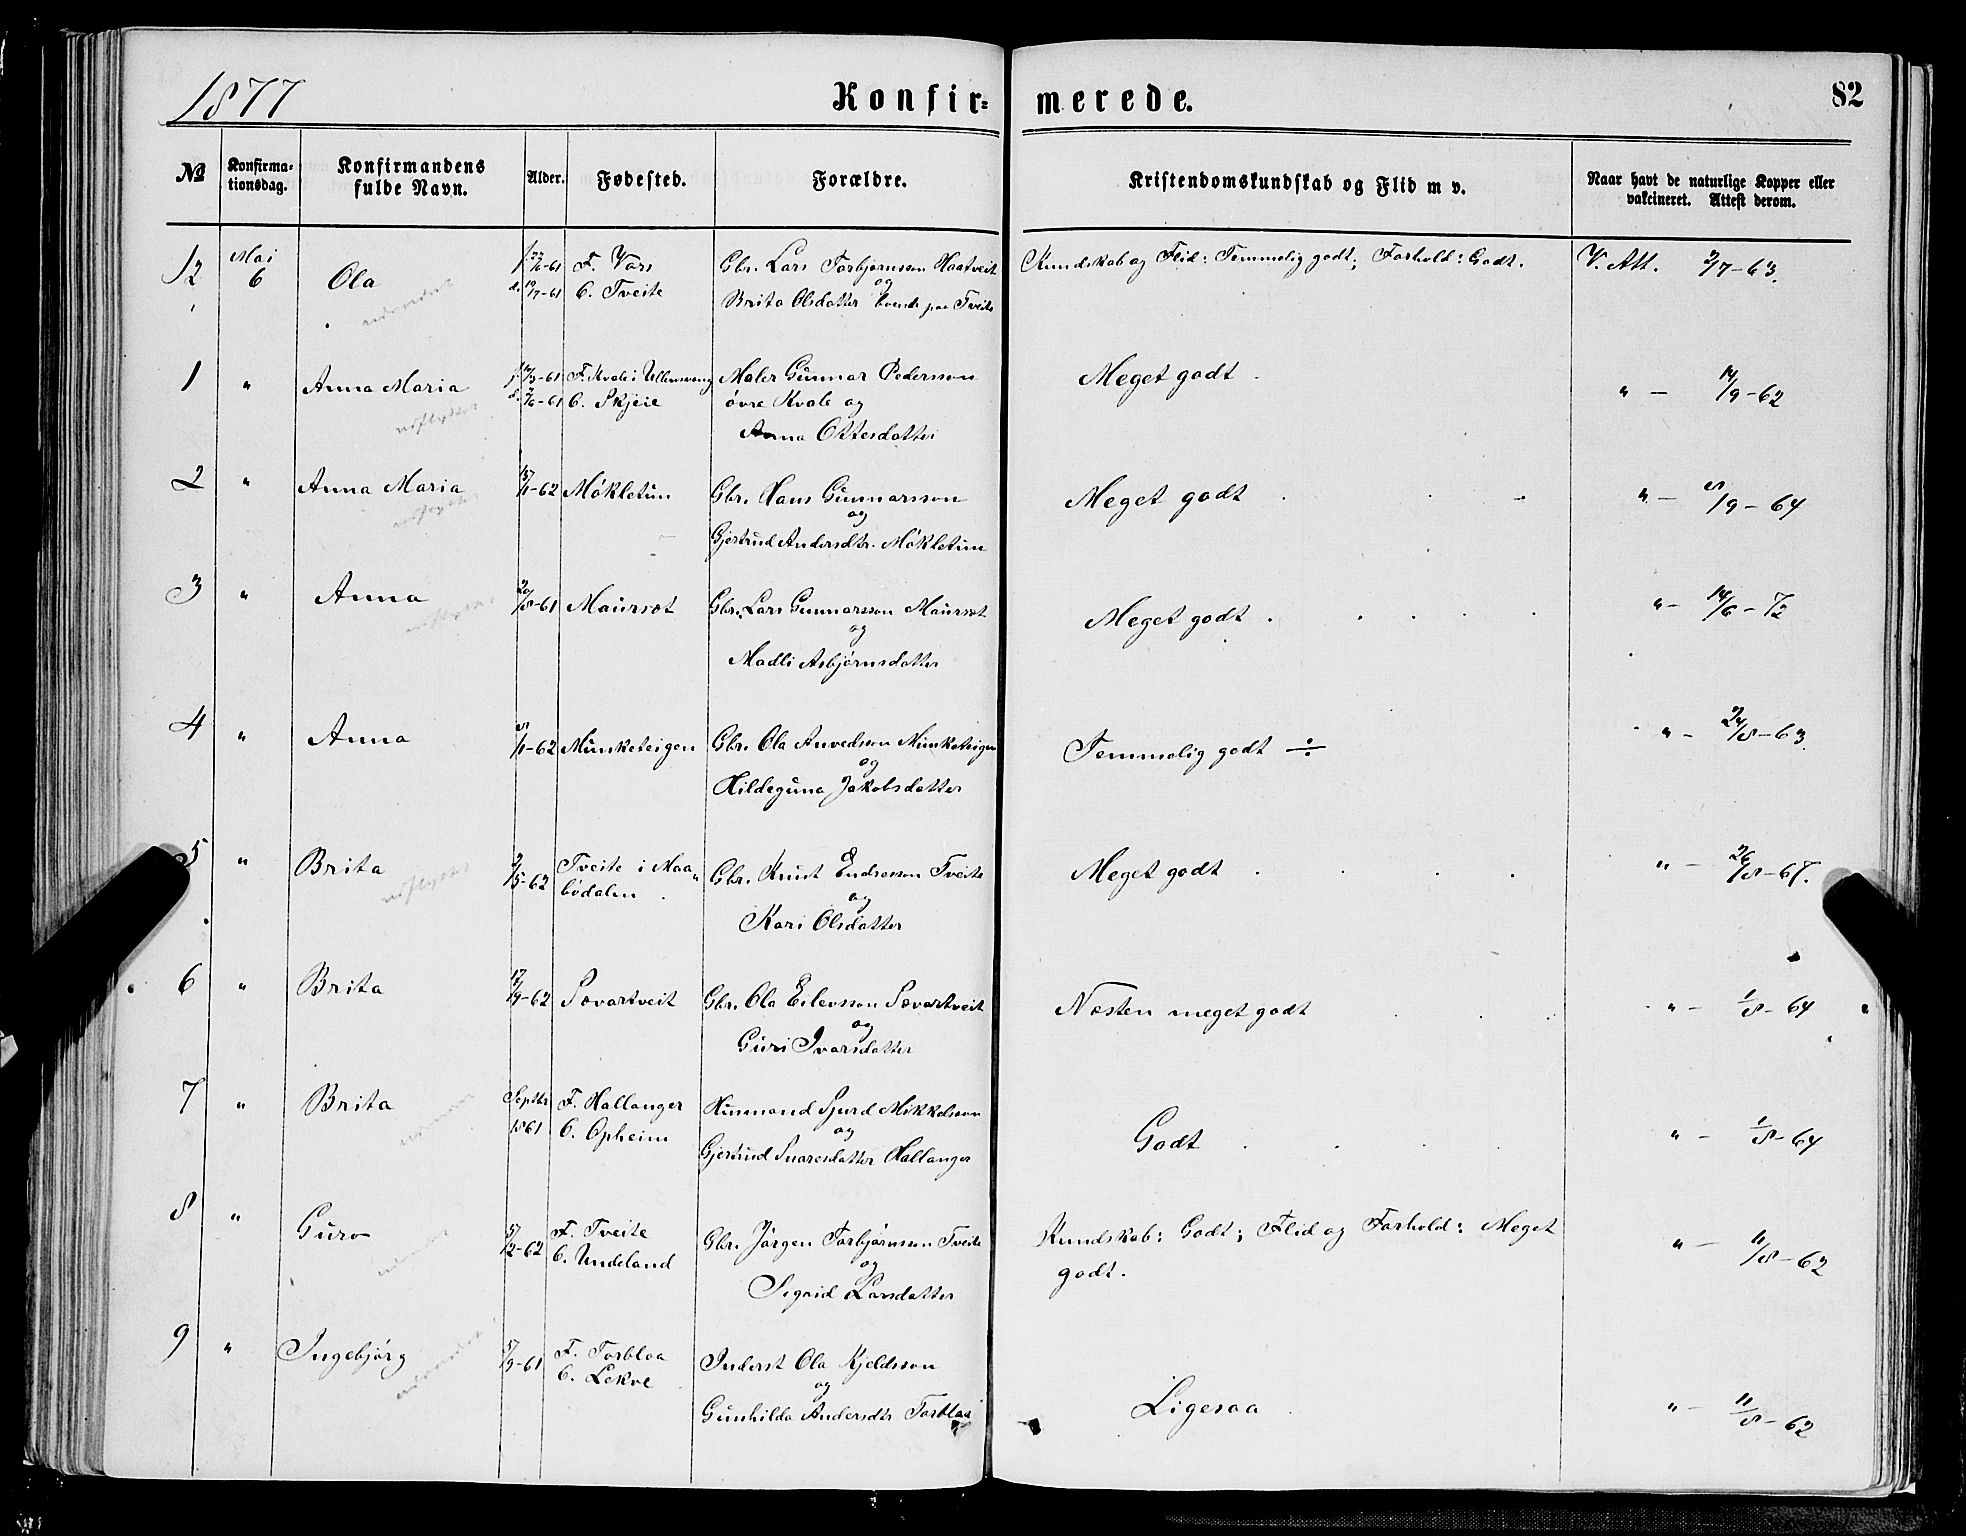 1877
Konfir=
merede.
82
№
Konfirma-
tionsdag.
Konfirmandens
fulde Navn.
Alder.
Fødested.
Forældre.
Kristendomskundskab og Flid m v.
Naar havt de naturlige Kopper eller
vakcineret. Attest derom.
12 Mai 6 Ola
F. Vørs
C. Tveite
Gbr. Lars Torbjørnsson Haatveit
og
Brita Olsdatter boende paa Tveite
Kundskab og Flid: Temmelig godt; Forhold: Godt.
V. Att. 2/7-63.
1 " Anna Maria
F. Kvale i Ullensvang
C. Skjeie
Maler Gunnar Pedersson
øvre Kvale og
Anna Ottesdatter
Meget godt.
" - 14/9-62
2 " Anna Maria
Møkletun
Gbr. Hans Gunnarsson
og
Gjertrud Andersdtr. Møkletun
Meget godt
" - 8/9-64
3 " Anna
20/8-61
Maursæt
Gbr. Lars Gunnarsson Maursæt
og
Madli Asbjørnsdatter
Meget godt.
" - 14/6-72
4 " Anna
8/1-62
Munketeigen
Gbr. Ola Anvedsson Munketeigen
og
Hildeguna Jakobsdatter
Temmelig godt ÷
" - 24/8-63.
5 " Brita
2/5-62
Tveite i Maa"
bødalen.
Gbr. Knut Endresson Tveite
og
Kari Olsdatter
Meget godt
" - 26/8-67.
6 " Brita
17/9-62
Sævartveit
Gbr. Ola Eilevsson Sævartveit
og
Guri Ivarsdatter
Næsten meget godt
" - 1/8-64
7 " Brita
Septbr
1861
F. Hallanger
C. Opheim
Husmand Sjurd Mikkelsson
og
Gjertrud Snaresdatter Hallanger
Godt
" - 1/8-64
8 " Guro
F. Tveite
C. Undeland
Gbr. Jørgen Torbjørnsson Tveite
og
Sigrid Larsdatter
Kundskab: Godt; Flid og Forhold: Meget
godt.
" - 11/8-62
9 " Ingebjørg
F. Torblaa
C. Lekve
Inderst Ola Kjeldsson
og
Gunhilda Andersdtr Torblaa
Ligesaa
" - 11/8-62